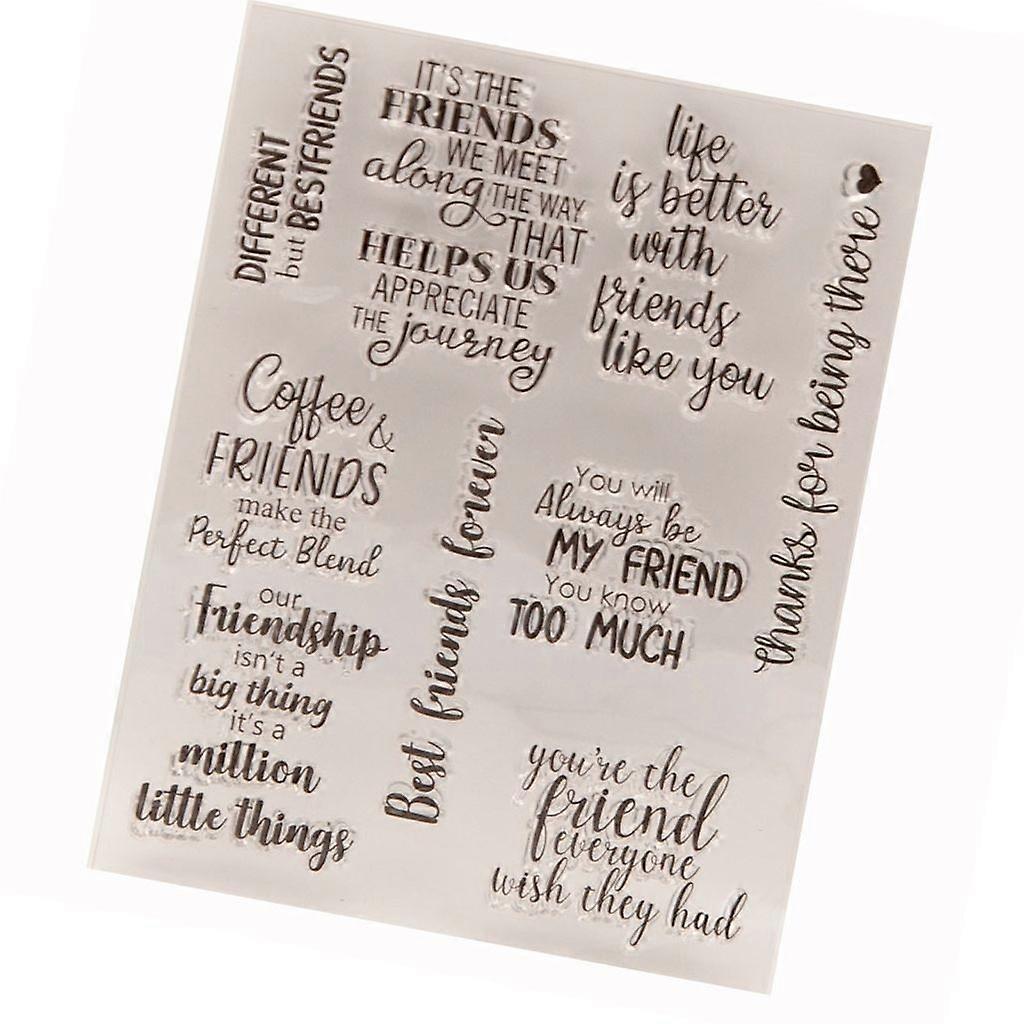 DIFFERENT
but BESTFRIENDS
IT'S THE
FRIENDS
WE MEET
along THE WAY
THAT
HELPS US
APPRECIATE
THE journey
life
is better
with
friends
like you
thanks for being there
Coffee &
FRIENDS
make the
Perfect Blend
Best friends forever
You will
Always be
MY FRIEND
You know
TOO MUCH
our
Friendship
isn't a
big thing
it's a
million
little things
you're the
friend
everyone
wish they had